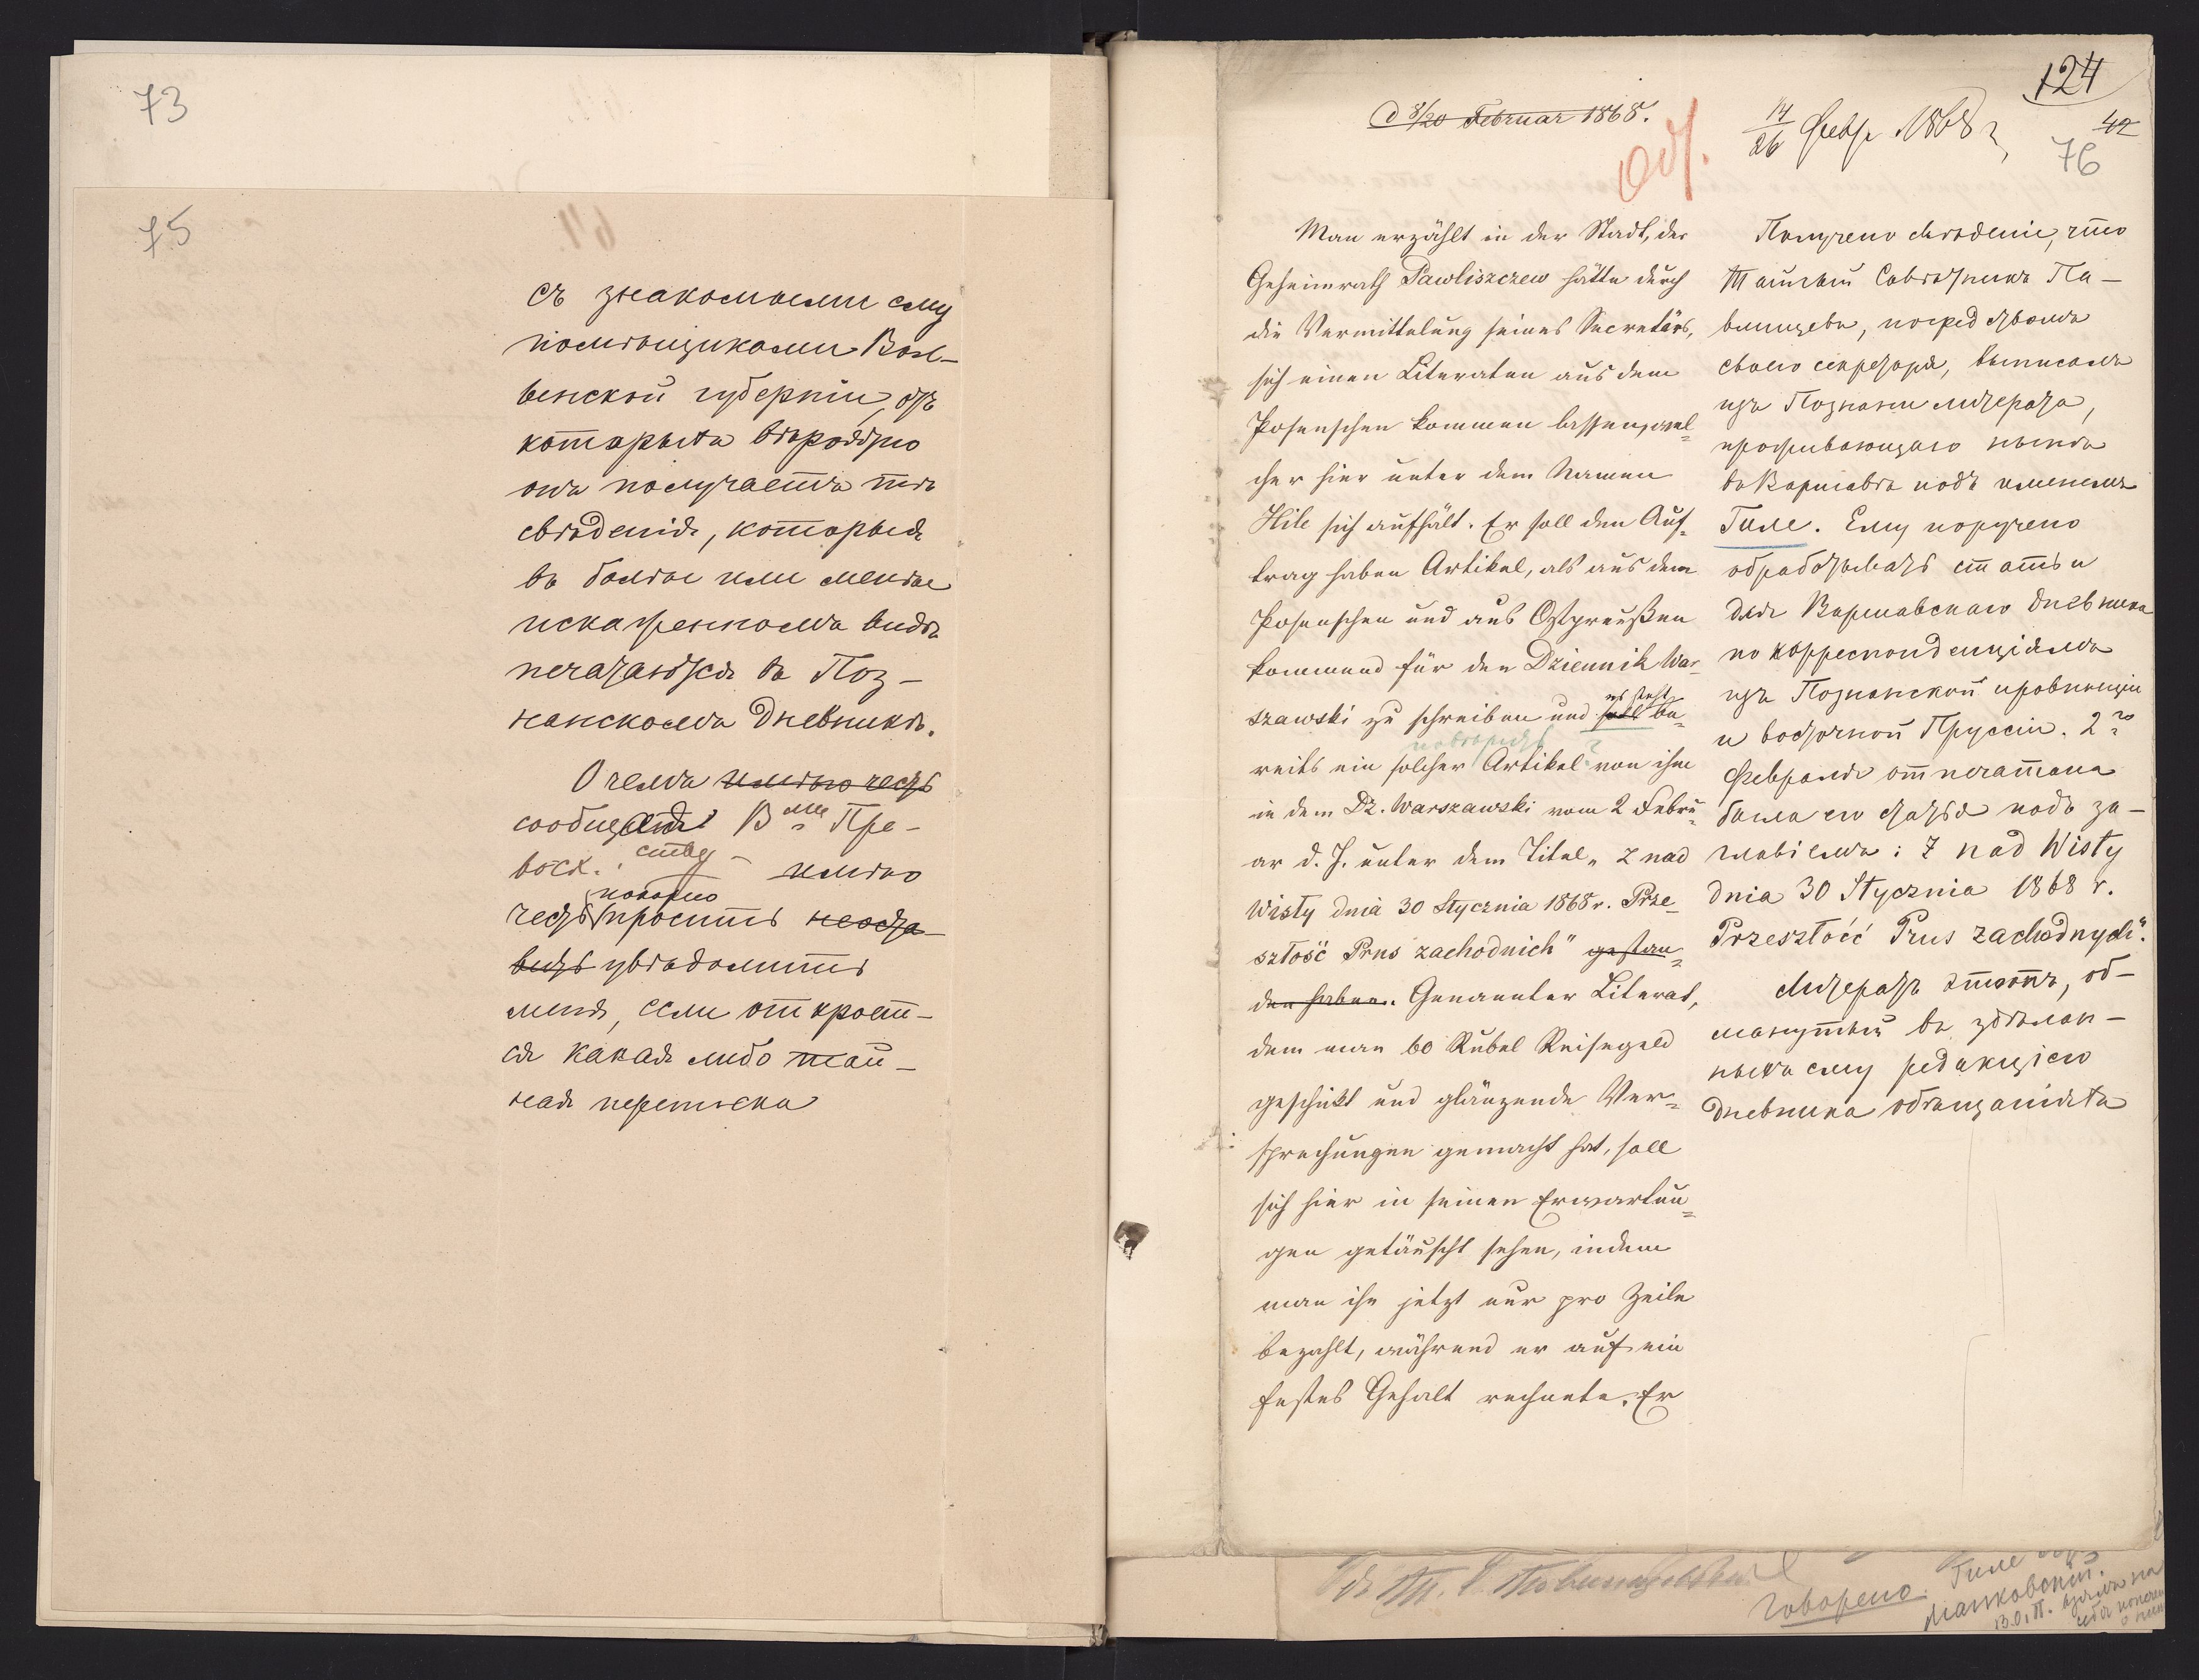 73
75
съ знакомыми ему
помѣщиками Вол-
венской губерніи, отъ
которыхъ вѣроятно
онъ получаетъ тѣ
свѣденія, которыя
въ болѣе или менѣе
искаженномъ видѣ
печатаются въ Поз-
нанскомъ Дневникѣ.
О чемъ имѣю честь
сообщая В Пре-
восх. ству имѣю
покорно
честь просить неоста-
вить увѣдомить
меня, если откроет-
ся какая либо тай-
ная переписка
124
42
76
d 8/20 Februar 1868.
14/26 Февр 1868 г
Man erzählt in der Stadt, der
Geheimrath Pawliszczew hätte durch
die Vermittelung seines Secretärs,
sich einen Literaten aus dem
Posenschen kommen lassen, wel-
cher hier unter dem Namen
Hile sich aufhält. Er soll den Auf-
trag haben Artikel, als aus dem
Posenschen und aus Ostpreußen
kommend für den Dziennik War-
szawski zu schreiben und soll be-
reits ein solcher Artikel von ihm
in dem Dz. Warszawski vom 2 Febru-
ar d. J. unter dem Titel „Z nad
Wisły dnia 30 Stycznia 1868 r. Prze-
szłość Prus zachodnich" gestan-
den haben. Genannter Literat,
dem man 60 Rubel Reisegeld
geschickt und glänzende Ver-
sprechungen gemacht hat, soll
sich hier in seinen Erwartun-
gen getäuscht sehen, indem
man ihn jetzt nur pro Zeile
bezahlt, während er auf ein
festes Gehalt rechnete. Er
Получено свѣденіе, что
Тайный Совѣтникъ Па-
влищевъ, посредствомъ
своего секретаря, выписалъ
изъ Познани литерата,
проживающаго нынѣ
въ Варшавѣ подъ именемъ
Гиле. Ему поручено
обработывать статьи
для Варшавскаго Дневника
по корреспонденціямъ
изъ Познанской провинціи
и восточной Пруссіи. 2го
Февраля отпечатана
была его статья подъ за-
главіемъ: Z nad Wisły
dnia 30 Stycznia 1868 r.
Przeszłość Prus zachodnych".
Литератъ этотъ, об-
манутый въ здѣлан-
ныхъ ему редакціею
Дневника обѣщаніяхъ
говорено
Гиле
Маньковскій.